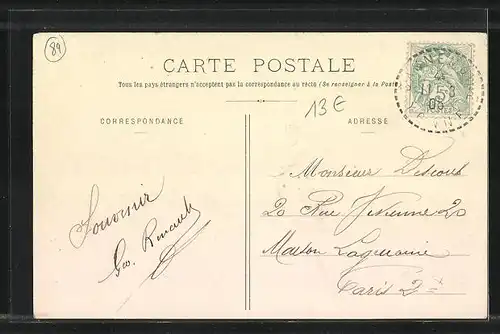 89
CARTE POSTALE
Tous les pays étrangers n'acceptent pas la correspondance au recto (Se renseigner à la Poste)
13€
CORRESPONDANCE
ADRESSE
Monsieur
20 Rue Vivienne 20
Maison
Paris 2e
Souvenir
Geo. Renault